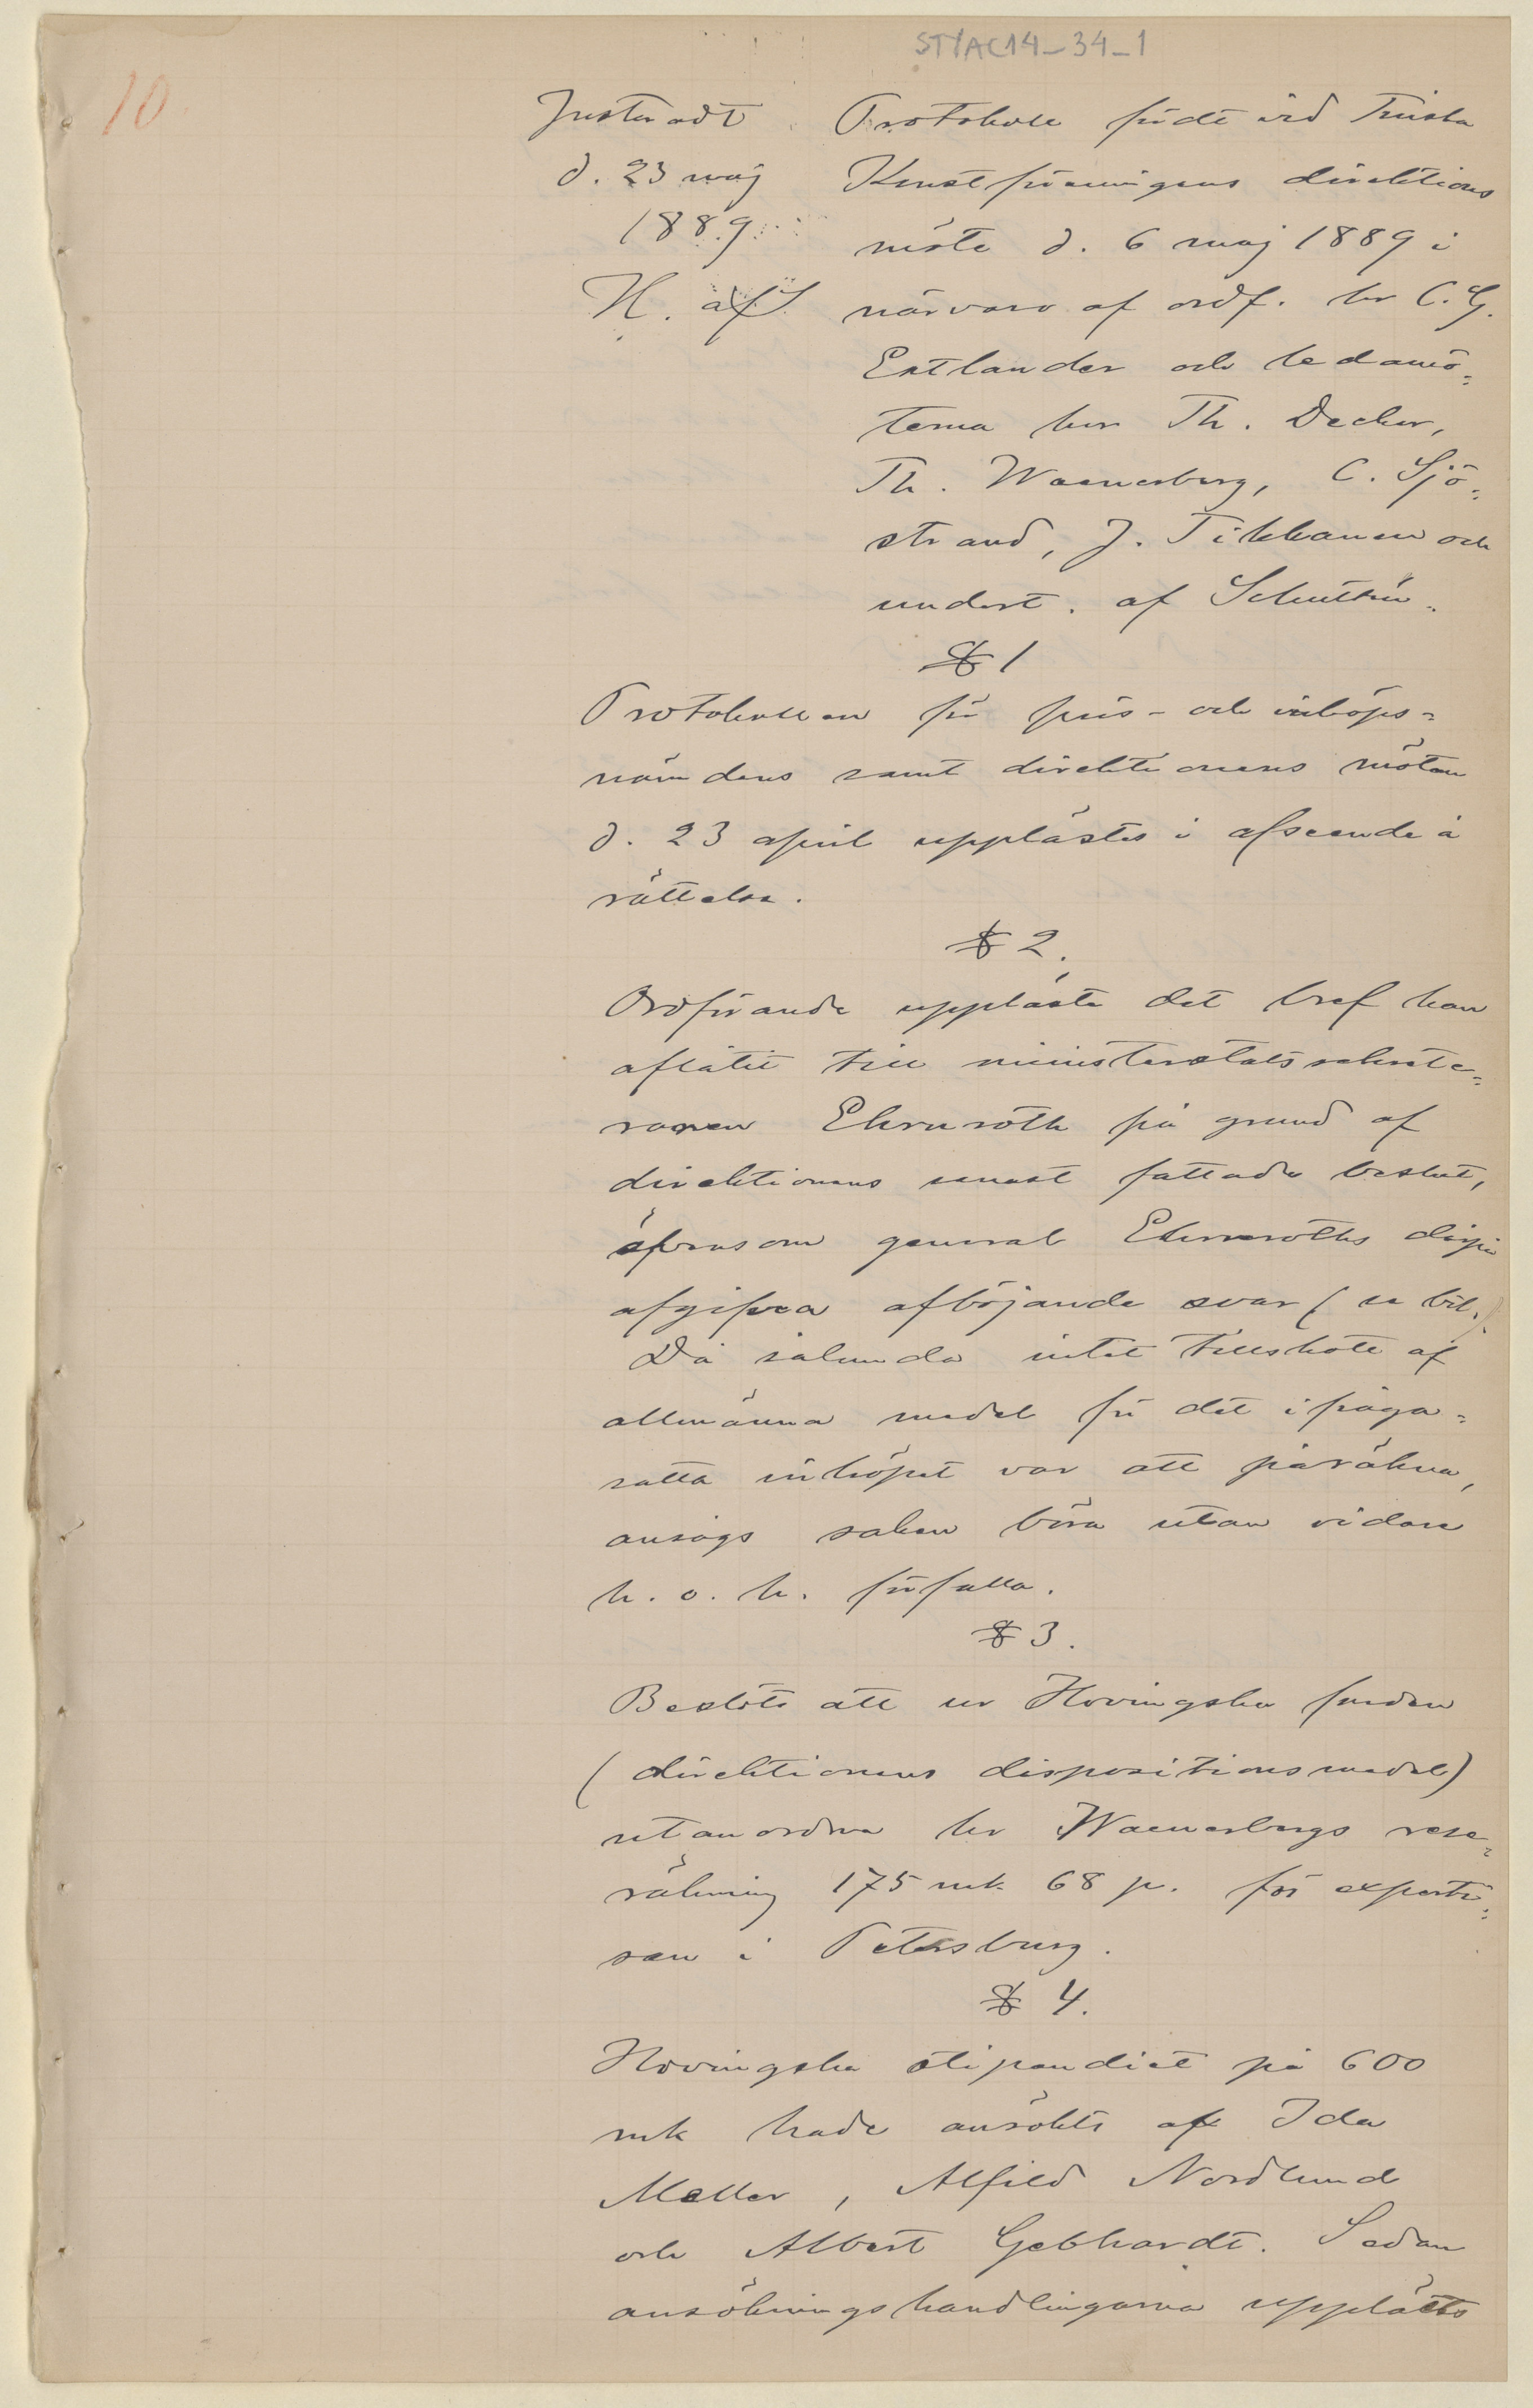 STYAC14-34-1
10
Justeradt
d. 23 maj
1889
H. af S.
Protokoll fördt vid Finska
Konstföreningens direktions
möte d. 6 maj 1889 i
närvaro af ordf. hr C. G.
Estlander och ledamö-
terna hrr Th. Decker,
Th. Waenerberg, C. Sjö-
strand, J. Tikkanen och
undert. af Schultén.
§ 1
Protokollen för pris- och inköps-
nämdens samt direktionens möten
d. 23 april upplästes i afseende å
rättelse.
§ 2.
Ordförande uppläste det bref han
aflåtit till ministerstatssekrete-
raren Ehrnroth på grund af
direktionens senast fattade beslut,
äfvensom general Ehrnroths derpå
afgifvna afböjande svar (se bil.).
Då sålunda intet tillskott af
allmänna medel för det ifråga-
satta inköpet var att påräkna,
ansågs saken böra utan vidare
h. o. h. förfalla.
§ 3.
Beslöts att ur Hovingska fonden
(direktionens dispositionsmedel)
utanordna hr Waenerbergs rese-
räkning 175 mk 68 p. för experti-
sen i Petersburg.
§ 4.
Hovingska stipendiet på 600
mk hade ansökts af Ida
Meller, Alfild Nordlund
och Albert Gebhardt. Sedan
ansökningshandlingarna upplästs